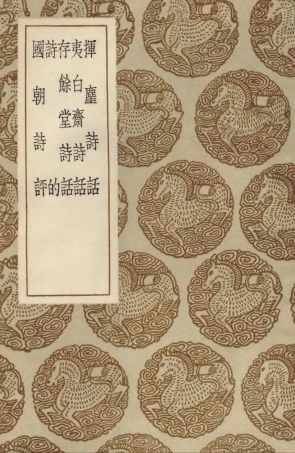 揮麈詩話
夷白齋詩話
存餘堂詩話
詩的
國朝詩評